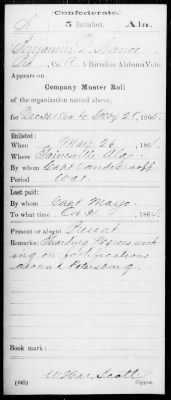 Confederate.
5 Battalion. Ala.
Benjamin
Co. A, 5 Battalion Alabama Vols.
Appears on
Company Muster Roll
of the organization named above,
for Dec 31 1864 to Feby 28, 1865.
Enlisted:
When May 26, 1861.
Where Gainesville Ala.
By whom Capt Vandegraaff
Period War
Last paid:
By whom Capt Mayo
To what time Oct 31, 1864.
Present or absent Present
Remarks: Guarding Negroes work
ing on fortifications
around Petersburg.
Book mark:
Scott
(642) Copyist.